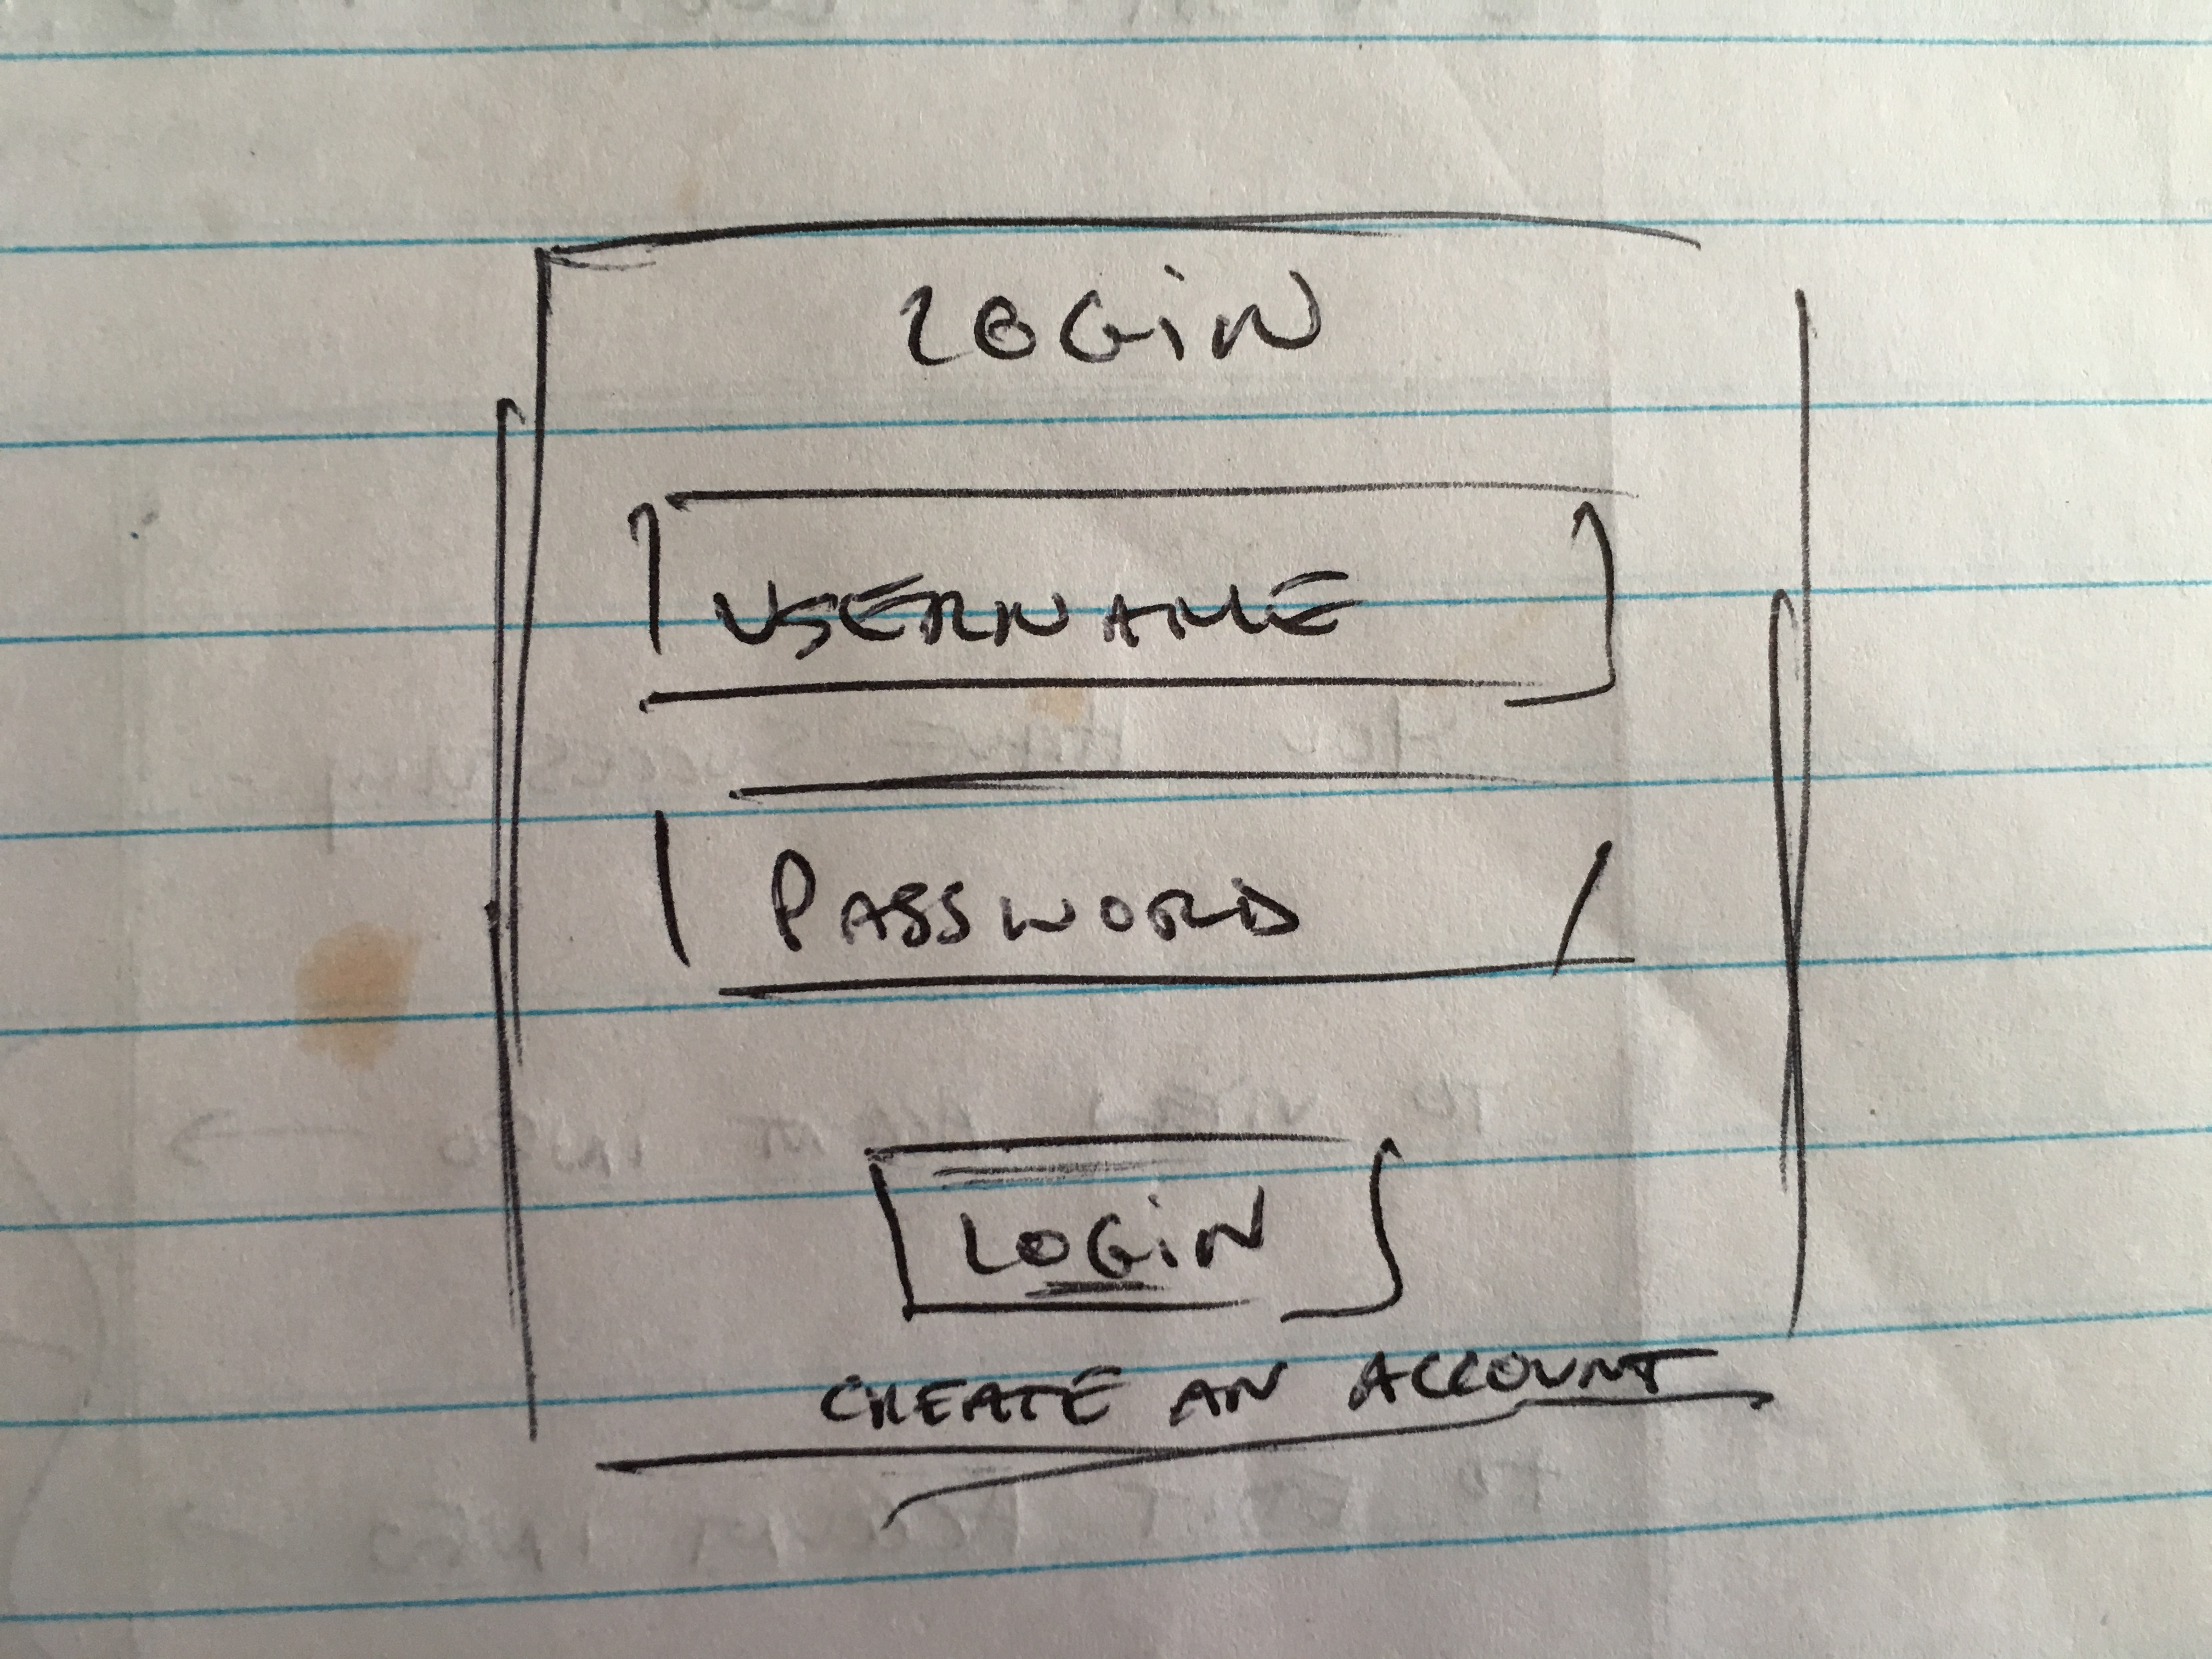 LOGiN
USERNAME
PASSWORD
LOGiN
CREATE AN ACCOUNT